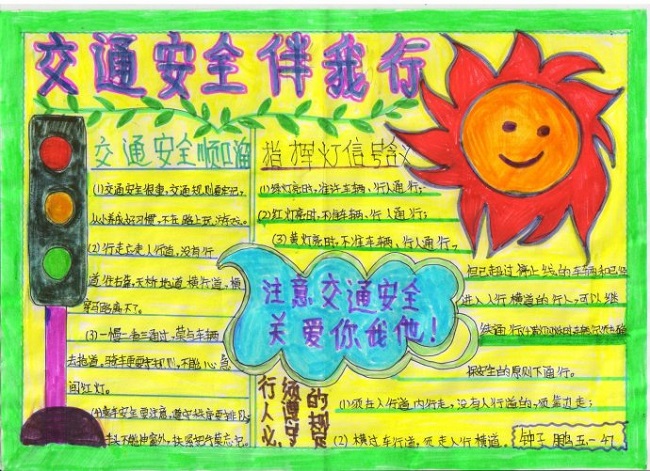 交通安全伴我行
交通安全顺口溜
(1)交通安全很重,交通规则要牢记,
从小养成好习惯,不在路上玩游戏。
(2)行走应走人行道,没有行
道往右靠,天桥地道横行道,横
穿可能离不了。
(3)一慢二看三通过,莫与车辆
去抢道,骑车更要守规则,不能心急
闯红灯。
(4)乘车安全要注意,遵守秩序要排队,
手头不能伸窗外,扶紧把手莫忘记。
指挥灯信号含义
(1)绿灯亮时,准许车辆、行人通行;
(2)红灯亮时,不准车辆、行人通行;
(3)黄灯亮时,不准车辆、行人通行,
但已超过停止线的车辆和已经
进入人行横道的行人,可以继
续通行
的原则下通行。
注意交通安全
关爱你我他!
行人必须遵守的规定
(1)须在人行道内行走,没有人行道的,须靠边走;
(2)横过车行道,须走人行横道。
钟子鹏 五一 47